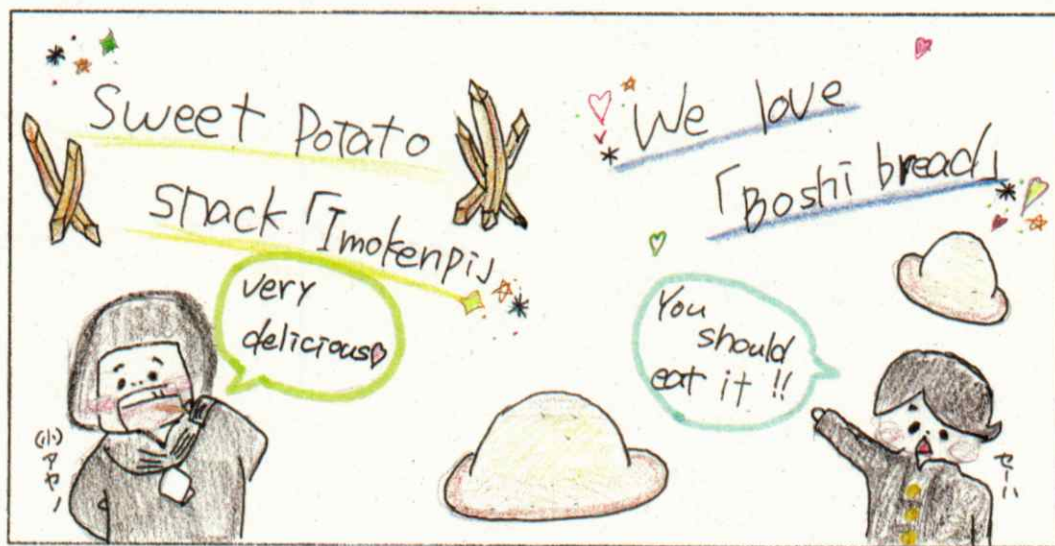 Sweet Potato
snack「Imokenpi」
very
delicious
We love
「Boshi bread」
You
should
eat it !!
(小)アヤノ
セーハ